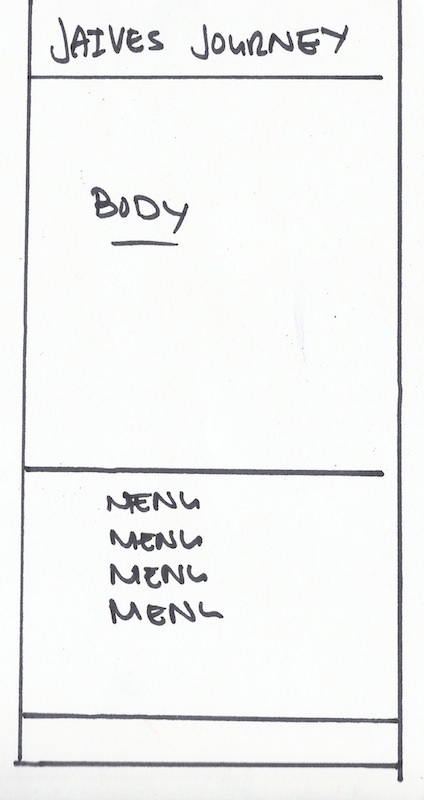 JAIVES JOURNEY
BODY
MENU
MENU
MENU
MENU